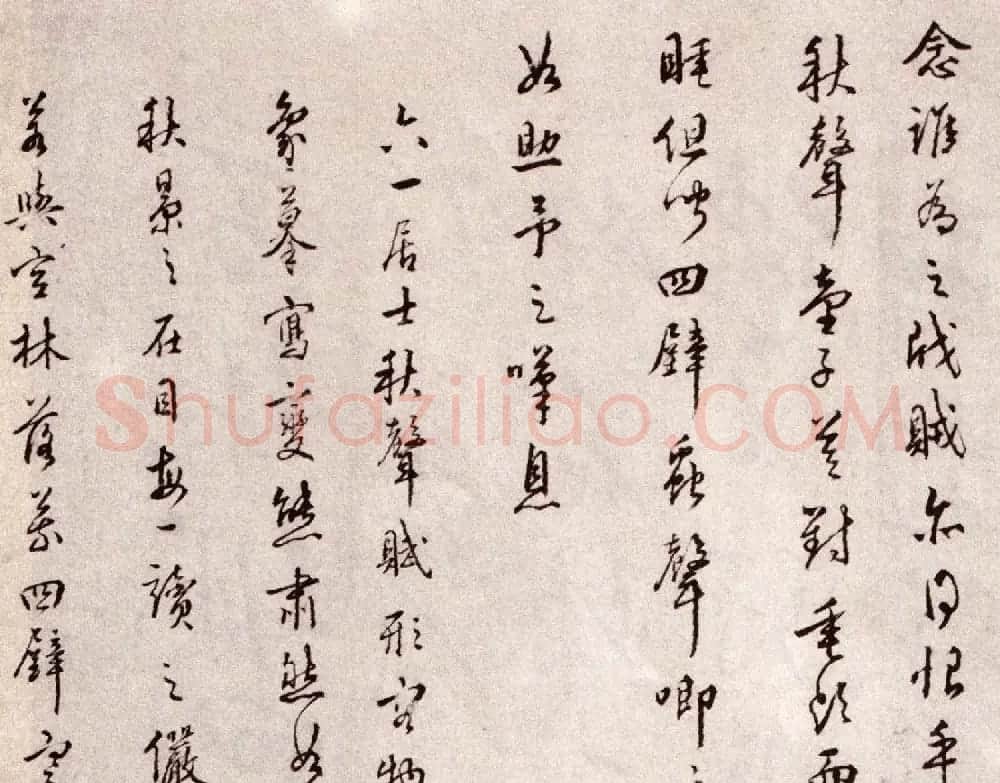 念誰為之戕賊亦何恨乎
秋聲童子莫對垂頭而
睡但聞四壁蟲聲唧
如助予之嘆息
六一居士秋聲賦形容物
象摹寫變態肅然如
秋景之在目每一讀之儼
若與空林落葉四壁
Shufaziliao.COM